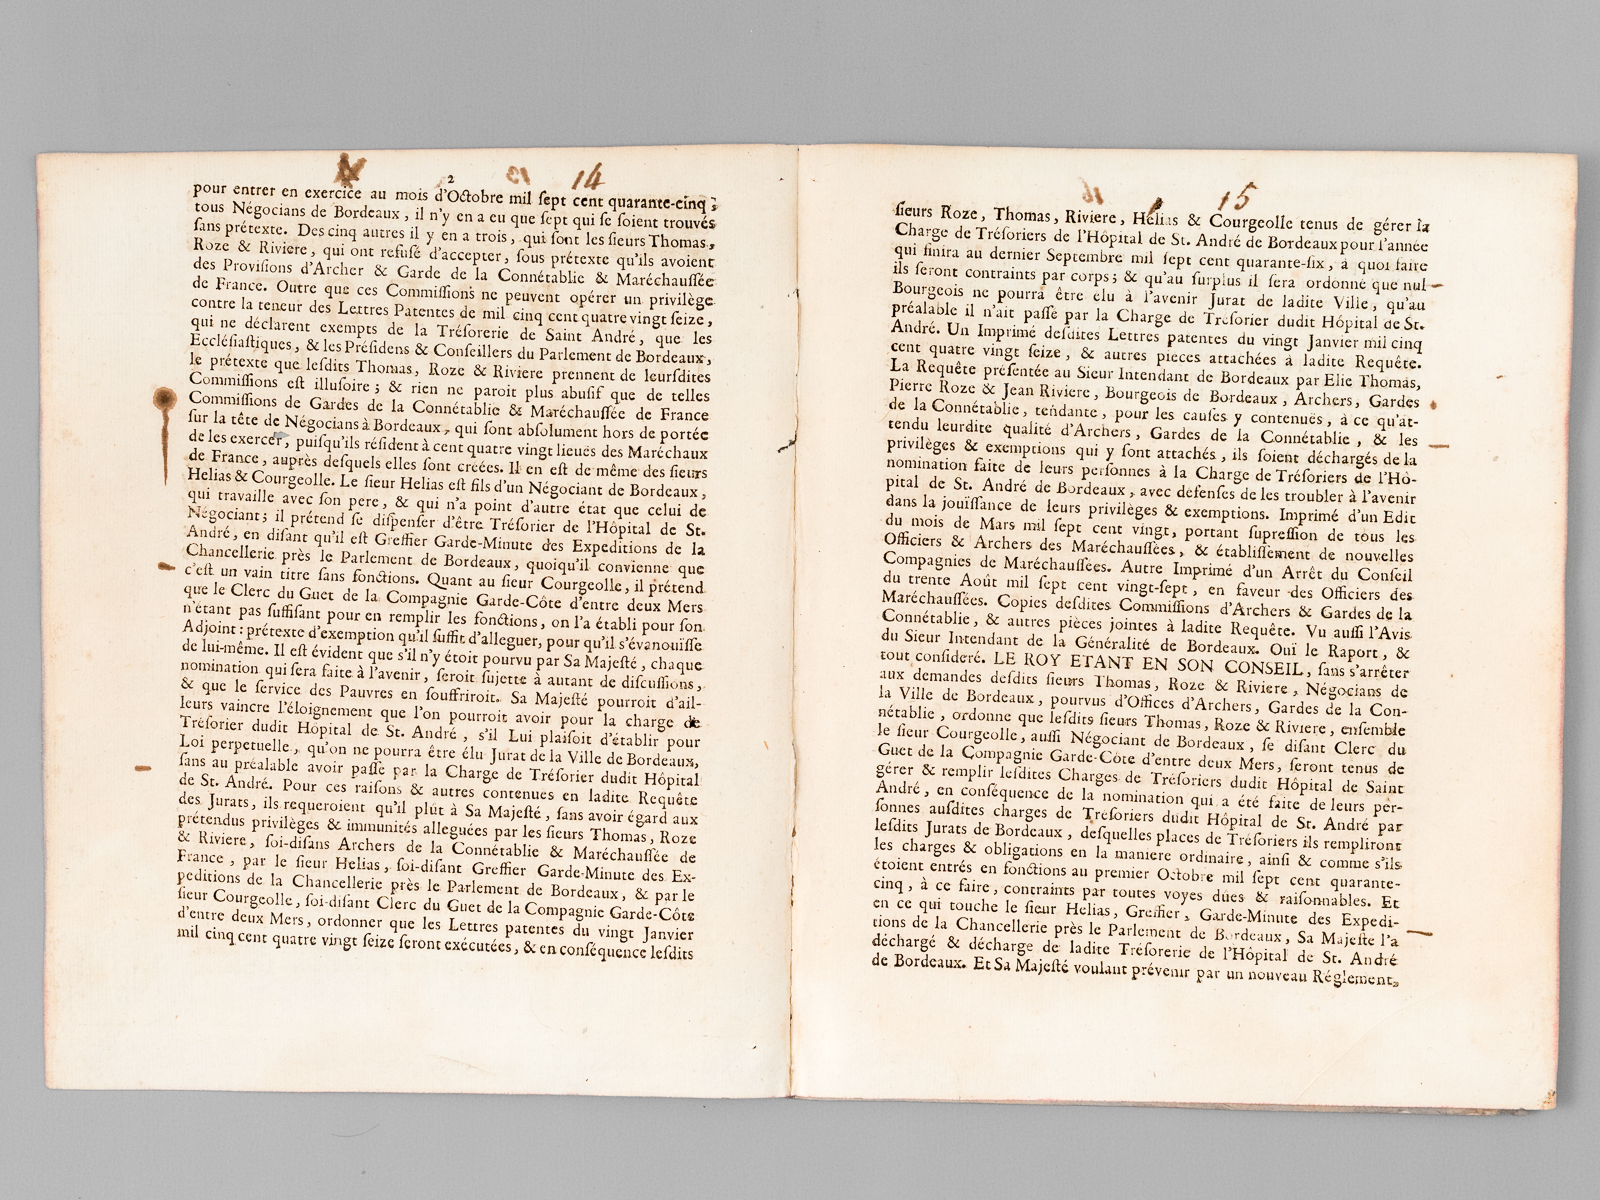 2 14
pour entrer en exercice au mois d'Octobre mil ſept cent quarante-cinq ;
tous Négocians de Bordeaux, il n'y en a eu que ſept qui ſe ſoient trouvés
ſans prétexte. Des cinq autres il y en a trois, qui ſont les ſieurs Thomas,
Roze & Riviere, qui ont refuſé d'accepter, ſous prétexte qu'ils avoient
des Proviſions d'Archer & Garde de la Connétablie & Maréchauſſée
de France. Outre que ces Commiſſions ne peuvent opérer un privilège
contre la teneur des Lettres Patentes de mil cinq cent quatre vingt ſeize,
qui ne déclarent exempts de la Tréſorerie de Saint André, que les
Eccléſiaſtiques, & les Préſidens & Conſeillers du Parlement de Bordeaux,
le prétexte que leſdits Thomas, Roze & Riviere prennent de leurſdites
Commiſſions eſt illuſoire ; & rien ne paroit plus abuſif que de telles
Commiſſions de Gardes de la Connétablie & Maréchauſſée de France
ſur la tête de Négocians à Bordeaux, qui ſont abſolument hors de portée
de les exercer, puiſqu'ils réſident à cent quatre vingt lieuës des Maréchaux
de France, auprès deſquels elles ſont créées. Il en eſt de même des ſieurs
Helias & Courgeolle. Le ſieur Helias eſt fils d'un Négociant de Bordeaux,
qui travaille avec ſon pere, & qui n'a point d'autre état que celui de
Négociant ; il prétend ſe diſpenſer d'être Tréſorier de l'Hôpital de St.
André, en diſant qu'il eſt Greffier Garde-Minute des Expeditions de la
Chancellerie près le Parlement de Bordeaux, quoiqu'il convienne que
c'eſt un vain titre ſans fonctions. Quant au ſieur Courgeolle, il prétend
que le Clerc du Guet de la Compagnie Garde-Côte d'entre deux Mers
n'étant pas ſuffiſant pour en remplir les fonctions, on l'a établi pour ſon
Adjoint : prétexte d'exemption qu'il ſuffit d'alleguer, pour qu'il s'évanouïſſe
de lui-même. Il eſt évident que s'il n'y étoit pourvu par Sa Majeſté, chaque
nomination qui ſera faite à l'avenir, ſeroit ſujette à autant de diſcuſſions,
& que le ſervice des Pauvres en ſouffriroit. Sa Majeſté pourroit d'ail-
leurs vaincre l'éloignement que l'on pourroit avoir pour la charge de
Tréſorier dudit Hôpital de St. André, s'il Lui plaiſoit d'établir pour
Loi perpetuelle, qu'on ne pourra être élu Jurat de la Ville de Bordeaux,
ſans au préalable avoir paſſé par la Charge de Tréſorier dudit Hôpital
de St. André. Pour ces raiſons & autres contenues en ladite Requête
des Jurats, ils requeroient qu'il plût à Sa Majeſté, ſans avoir égard aux
prétendus privilèges & immunités alleguées par les ſieurs Thomas, Roze
& Riviere, ſoi-diſans Archers de la Connétablie & Maréchauſſée de
France, par le ſieur Helias, ſoi-diſant Greffier Garde-Minute des Ex-
peditions de la Chancellerie près le Parlement de Bordeaux, & par le
ſieur Courgeolle, ſoi-diſant Clerc du Guet de la Compagnie Garde-Côte
d'entre deux Mers, ordonner que les Lettres patentes du vingt Janvier
mil cinq cent quatre vingt ſeize ſeront exécutées, & en conſéquence leſdits
15
ſieurs Roze, Thomas, Riviere, Helias & Courgeolle tenus de gérer la
Charge de Tréſoriers de l'Hôpital de St. André de Bordeaux pour l'année
qui finira au dernier Septembre mil ſept cent quarante-ſix, à quoi faire
ils ſeront contraints par corps ; & qu'au ſurplus il ſera ordonné que nul
Bourgeois ne pourra être élu à l'avenir Jurat de ladite Ville, qu'au
préalable il n'ait paſſé par la Charge de Tréſorier dudit Hôpital de St.
André. Un Imprimé deſdites Lettres patentes du vingt Janvier mil cinq
cent quatre vingt ſeize, & autres pieces attachées à ladite Requête.
La Requête préſentée au Sieur Intendant de Bordeaux par Elie Thomas,
Pierre Roze & Jean Riviere, Bourgeois de Bordeaux, Archers, Gardes
de la Connétablie, tendante, pour les cauſes y contenuës, à ce qu'at-
tendu leurdite qualité d'Archers, Gardes de la Connétablie, & les
privilèges & exemptions qui y ſont attachés, ils ſoient déchargés de la
nomination faite de leurs perſonnes à la Charge de Tréſoriers de l'Hô-
pital de St. André de Bordeaux, avec défenſes de les troubler à l'avenir
dans la jouiſſance de leurs privilèges & exemptions. Imprimé d'un Edit
du mois de Mars mil ſept cent vingt, portant ſupreſſion de tous les
Officiers & Archers des Maréchauſſées, & établiſſement de nouvelles
Compagnies de Maréchauſſées. Autre Imprimé d'un Arrêt du Conſeil
du trente Août mil ſept cent vingt-ſept, en faveur des Officiers des
Maréchauſſées. Copies deſdites Commiſſions d'Archers & Gardes de la
Connétablie, & autres pièces jointes à ladite Requête. Vu auſſi l'Avis
du Sieur Intendant de la Généralité de Bordeaux. Ouï le Raport, &
tout conſideré. LE ROY ETANT EN SON CONSEIL, ſans s'arrêter
aux demandes deſdits ſieurs Thomas, Roze & Riviere, Négocians de
la Ville de Bordeaux, pourvus d'Offices d'Archers, Gardes de la Con-
nétablie, ordonne que leſdits ſieurs Thomas, Roze & Riviere, enſemble
le ſieur Courgeolle, auſſi Négociant de Bordeaux, ſe diſant Clerc du
Guet de la Compagnie Garde-Côte d'entre deux Mers, ſeront tenus de
gérer & remplir leſdites Charges de Tréſoriers dudit Hôpital de Saint
André, en conſéquence de la nomination qui a été faite de leurs per-
ſonnes auſdites charges de Tréſoriers dudit Hôpital de St. André par
leſdits Jurats de Bordeaux, deſquelles places de Tréſoriers ils rempliront
les charges & obligations en la maniere ordinaire, ainſi & comme s'ils
étoient entrés en fonctions au premier Octobre mil ſept cent quarante-
cinq, à ce faire, contraints par toutes voyes dûes & raiſonnables. Et
en ce qui touche le ſieur Helias, Greffier, Garde-Minute des Expedi-
tions de la Chancellerie près le Parlement de Bordeaux, Sa Majeſté l'a
déchargé & décharge de ladite Tréſorerie de l'Hôpital de St. André
de Bordeaux. Et Sa Majeſté voulant prévenir par un nouveau Réglement,